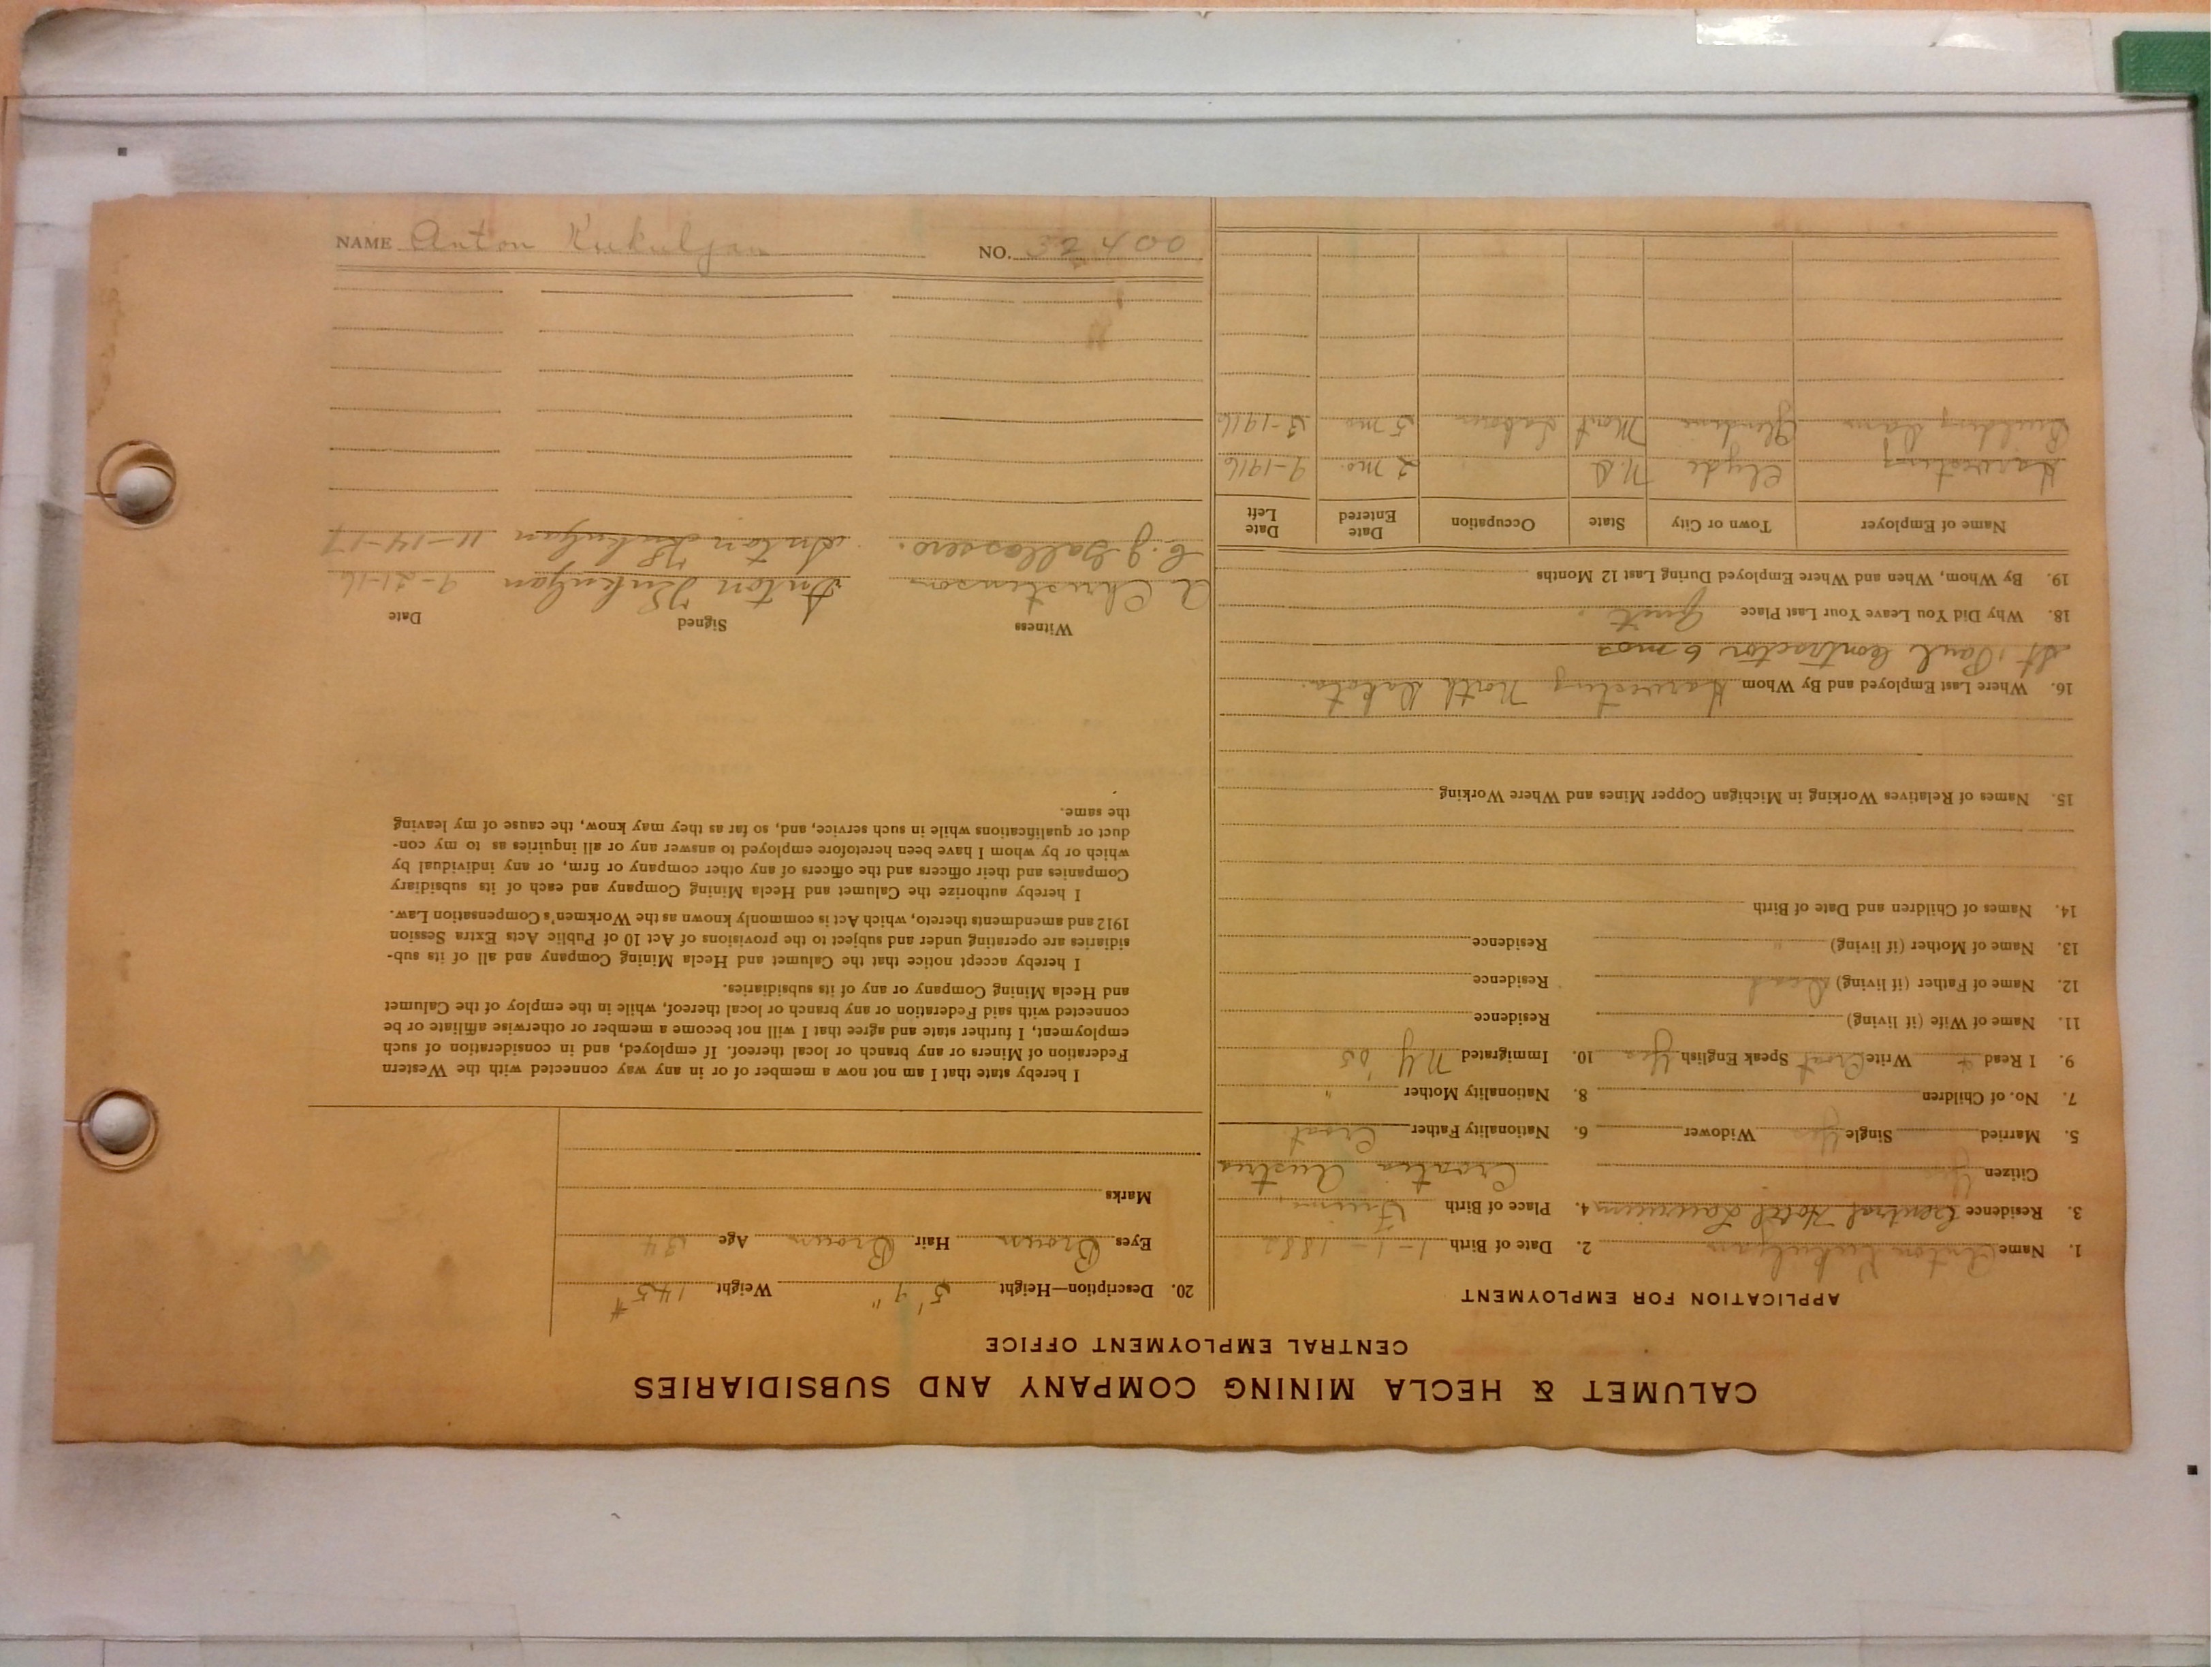 CALUMET & HECLA MINING COMPANY AND SUBSIDIARIES
CENTRAL EMPLOYMENT OFFICE
APPLICATION FOR EMPLOYMENT
1. Name Anton Kukuljan 2. Date of Birth 1-1-1882
3. Residence Central Hotel Laurium 4. Place of Birth Fiume,
Citizen Croatia Austria
5. Married Single Yes Widower 6. Nationality Father Croat
7. No. of Children 8. Nationality Mother "
9. I Read + Write Croat Speak English Yes 10. Immigrated N.Y. '05
11. Name of Wife (if living) Residence
12. Name of Father (if living) Dead Residence
13. Name of Mother (if living) " Residence
14. Names of Children and Date of Birth
15. Names of Relatives Working in Michigan Copper Mines and Where Working
16. Where Last Employed and By Whom Harvesting North Dakota.
St. Paul Contractor 6 mos
18. Why Did You Leave Your Last Place Quit.
19. By Whom, When and Where Employed During Last 12 Months
Name of Employer Town or City State Occupation Date Entered Date Left
Harvesting Clyde N.D. 2 mo. 9-1916
Building Dam Glendive Mont Labour 5 mo 3-1916
20. Description—Height 5' 9" Weight 145 #
Eyes Brown Hair Brown Age 34
Marks
I hereby state that I am not now a member of or in any way connected with the Western
Federation of Miners or any branch or local thereof. If employed, and in consideration of such
employment, I further state and agree that I will not become a member or otherwise affiliate or be
connected with said Federation or any branch or local thereof, while in the employ of the Calumet
and Hecla Mining Company or any of its subsidiaries.
I hereby accept notice that the Calumet and Hecla Mining Company and all of its sub-
sidiaries are operating under and subject to the provisions of Act 10 of Public Acts Extra Session
1912 and amendments thereto, which Act is commonly known as the Workmen's Compensation Law.
I hereby authorize the Calumet and Hecla Mining Company and each of its subsidiary
Companies and their officers and the officers of any other company or firm, or any individual by
which or by whom I have been heretofore employed to answer any or all inquiries as to my con-
duct or qualifications while in such service, and, so far as they may know, the cause of my leaving
the same.
Witness Signed Date
A Christenson Anton 9-21-16
C. J. Anton 11-14-17
NAME Anton Kukuljan NO. 400